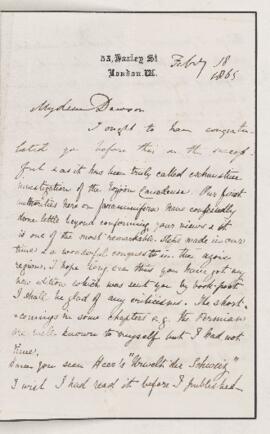 53, Harley St
London. W.
Feby 18
1865
My dear Dawson
I ought to have congratu-
lated you before this on the success-
ful & as it has been truly called exhaustive
investigation of the Eozoon Canadense. Our first
authorities here on foraminifera have confessedly
done little beyond confirming your views & it
is one of the most remarkable steps made in our
time & a wonderful conquest in the azoic
regions. I hope long ere this you have got my
new edition which was sent you by book post
I shall be glad of any criticisms. The short-
comings in some chapters e.g. the Permian
are well known to myself but I had not
time.
Have you seen Heer's "Urwelt der Schweiz"
I wish I had read it before I published